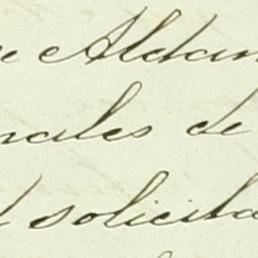 e Aldam
nales de
d solicita